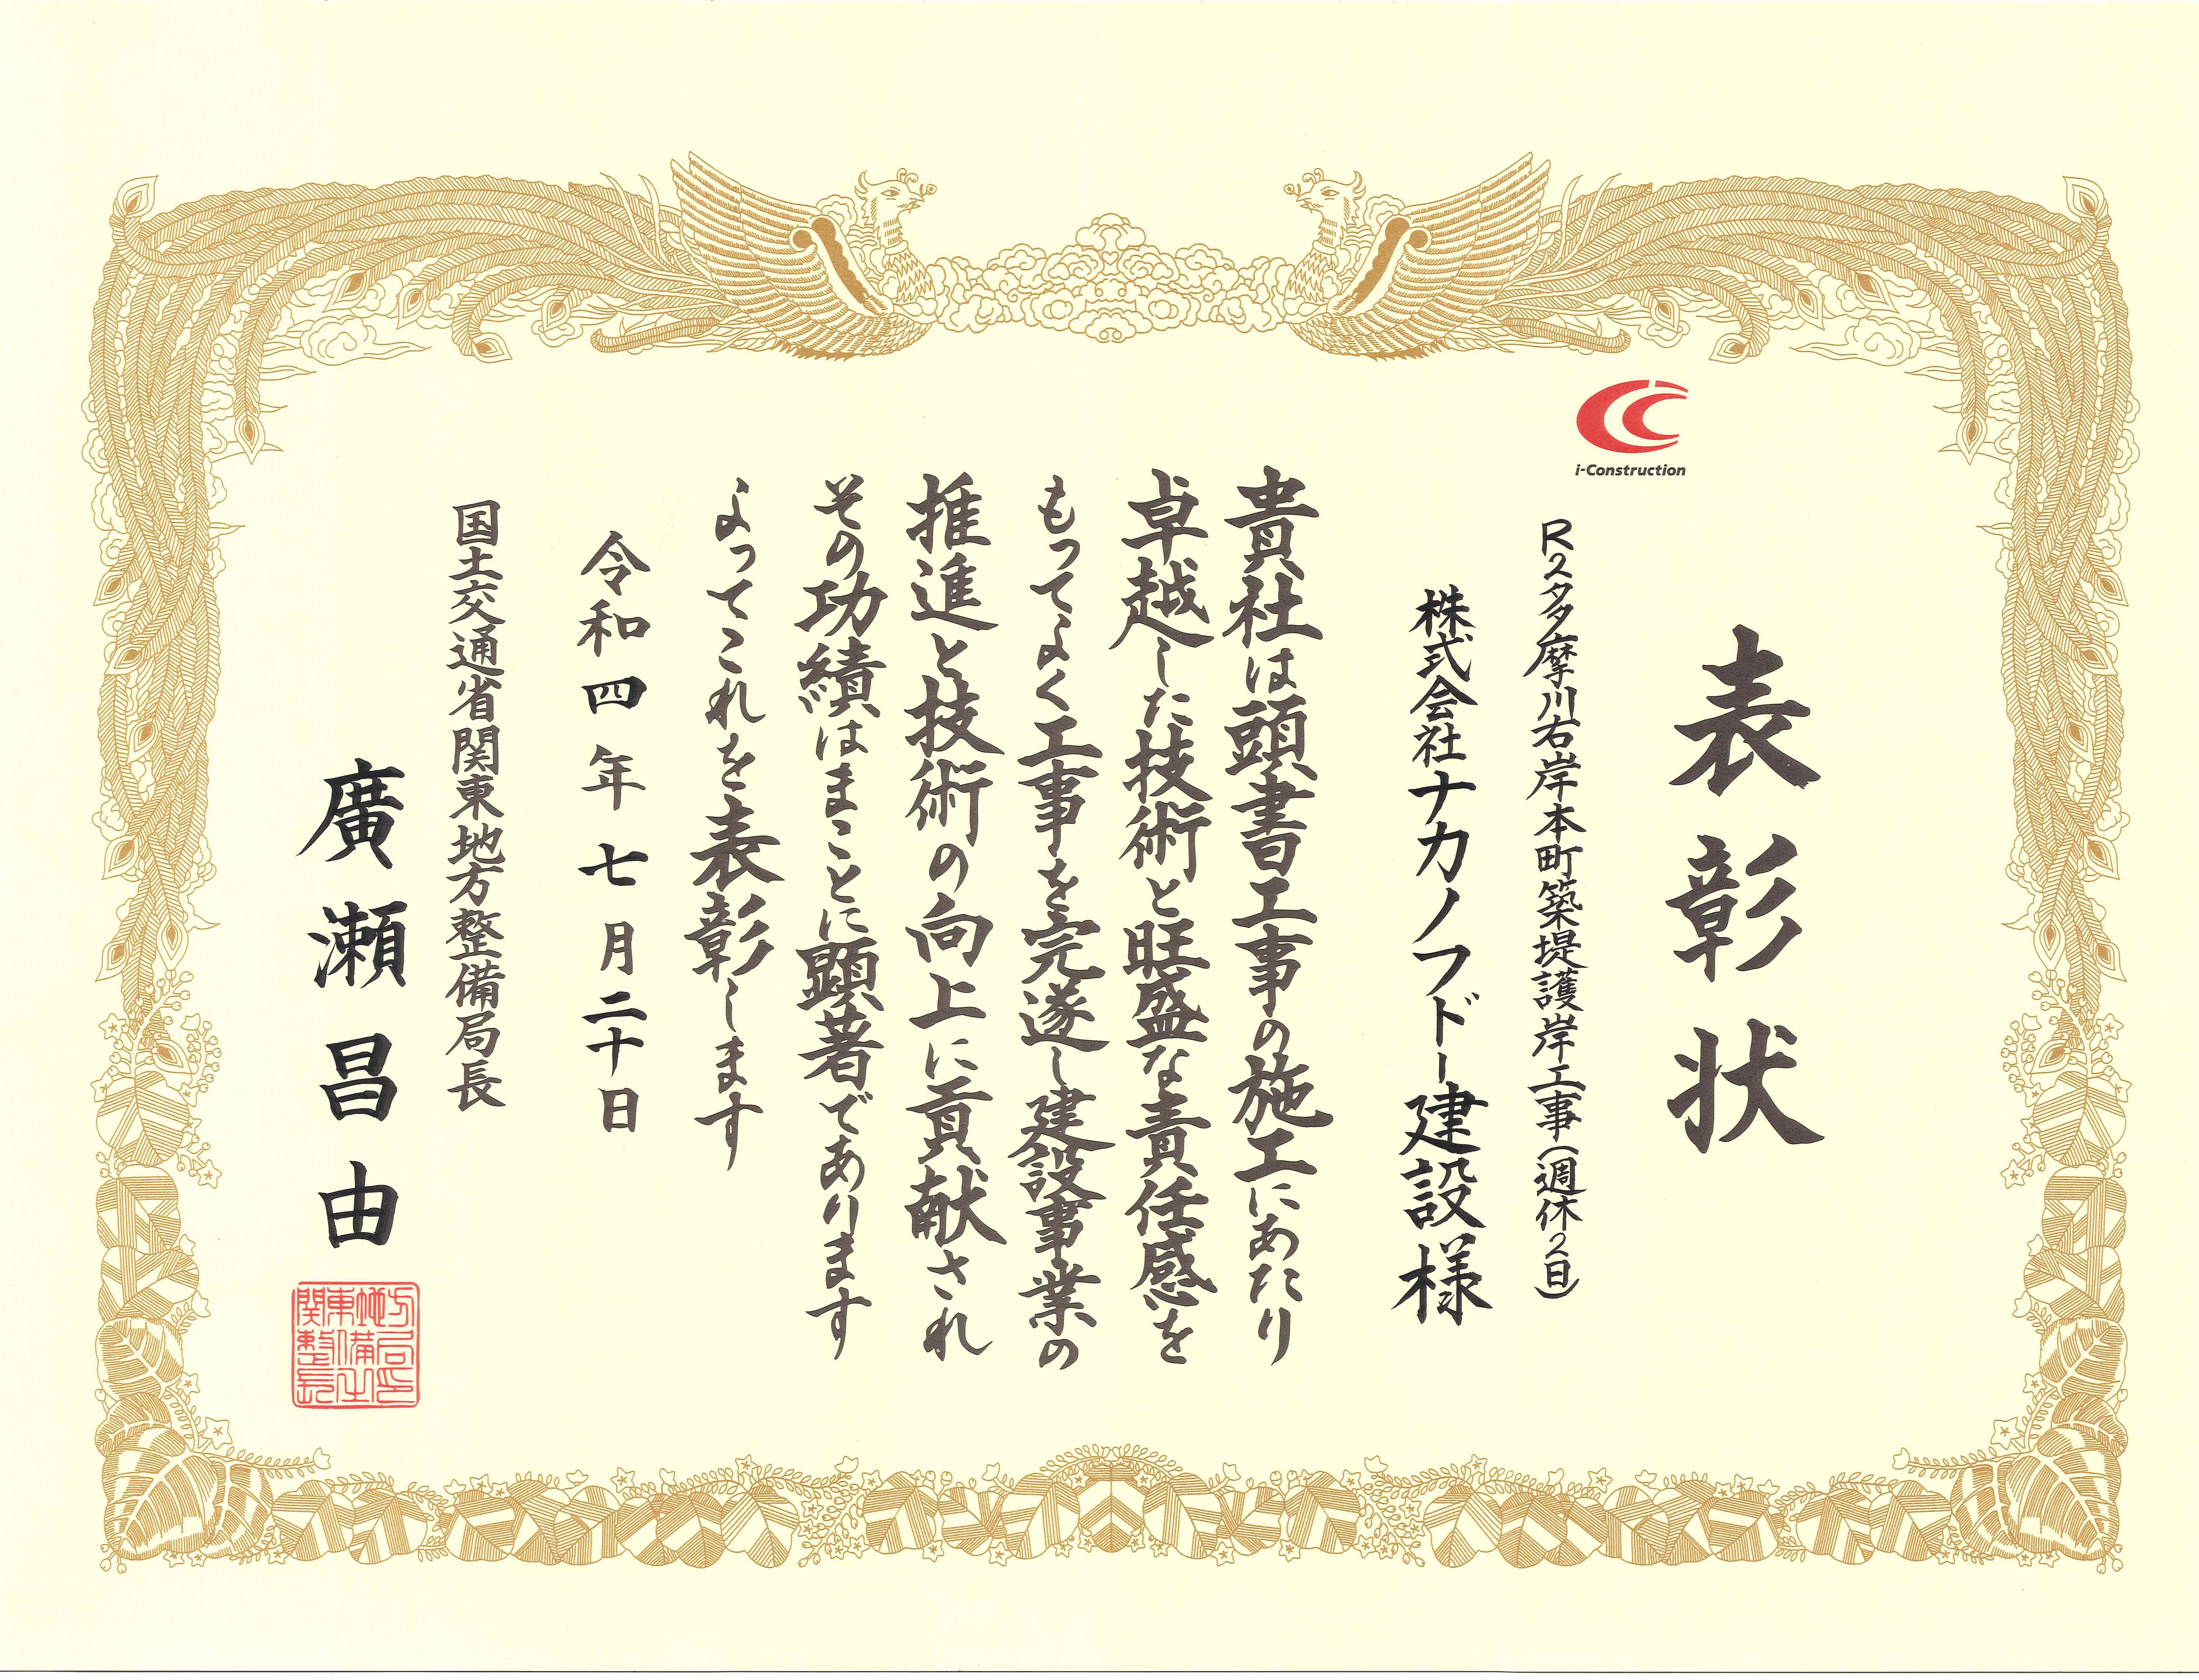 i-Construction
表彰状
R2多摩川右岸本町築堤護岸工事(週休2日)
株式会社ナカノフドー建設様
貴社は頭書工事の施工にあたり
卓越した技術と旺盛な責任感を
もってよく工事を完遂し建設事業の
推進と技術の向上に貢献され
その功績はまことに顕著であります
よってこれを表彰します
令和四年七月二十日
国土交通省関東地方整備局長
廣瀬昌由